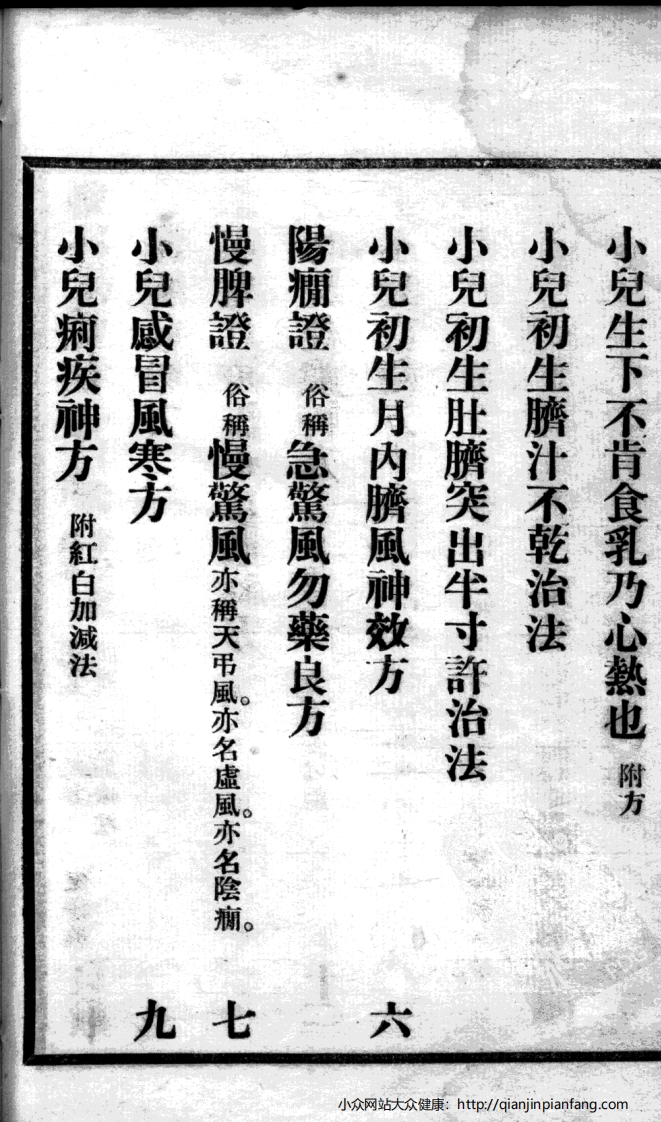 小兒生下不肯食乳乃心熱也 附方
小兒初生臍汁不乾治法
小兒初生肚臍突出半寸許治法
小兒初生月內臍風神效方 六
陽癇證 俗稱急驚風勿藥良方
慢脾證 俗稱慢驚風亦稱天弔風。亦名虛風。亦名陰癇。 七
小兒感冒風寒方 九
小兒痢疾神方 附紅白加減法
小众网站大众健康：http://qianjinpianfang.com